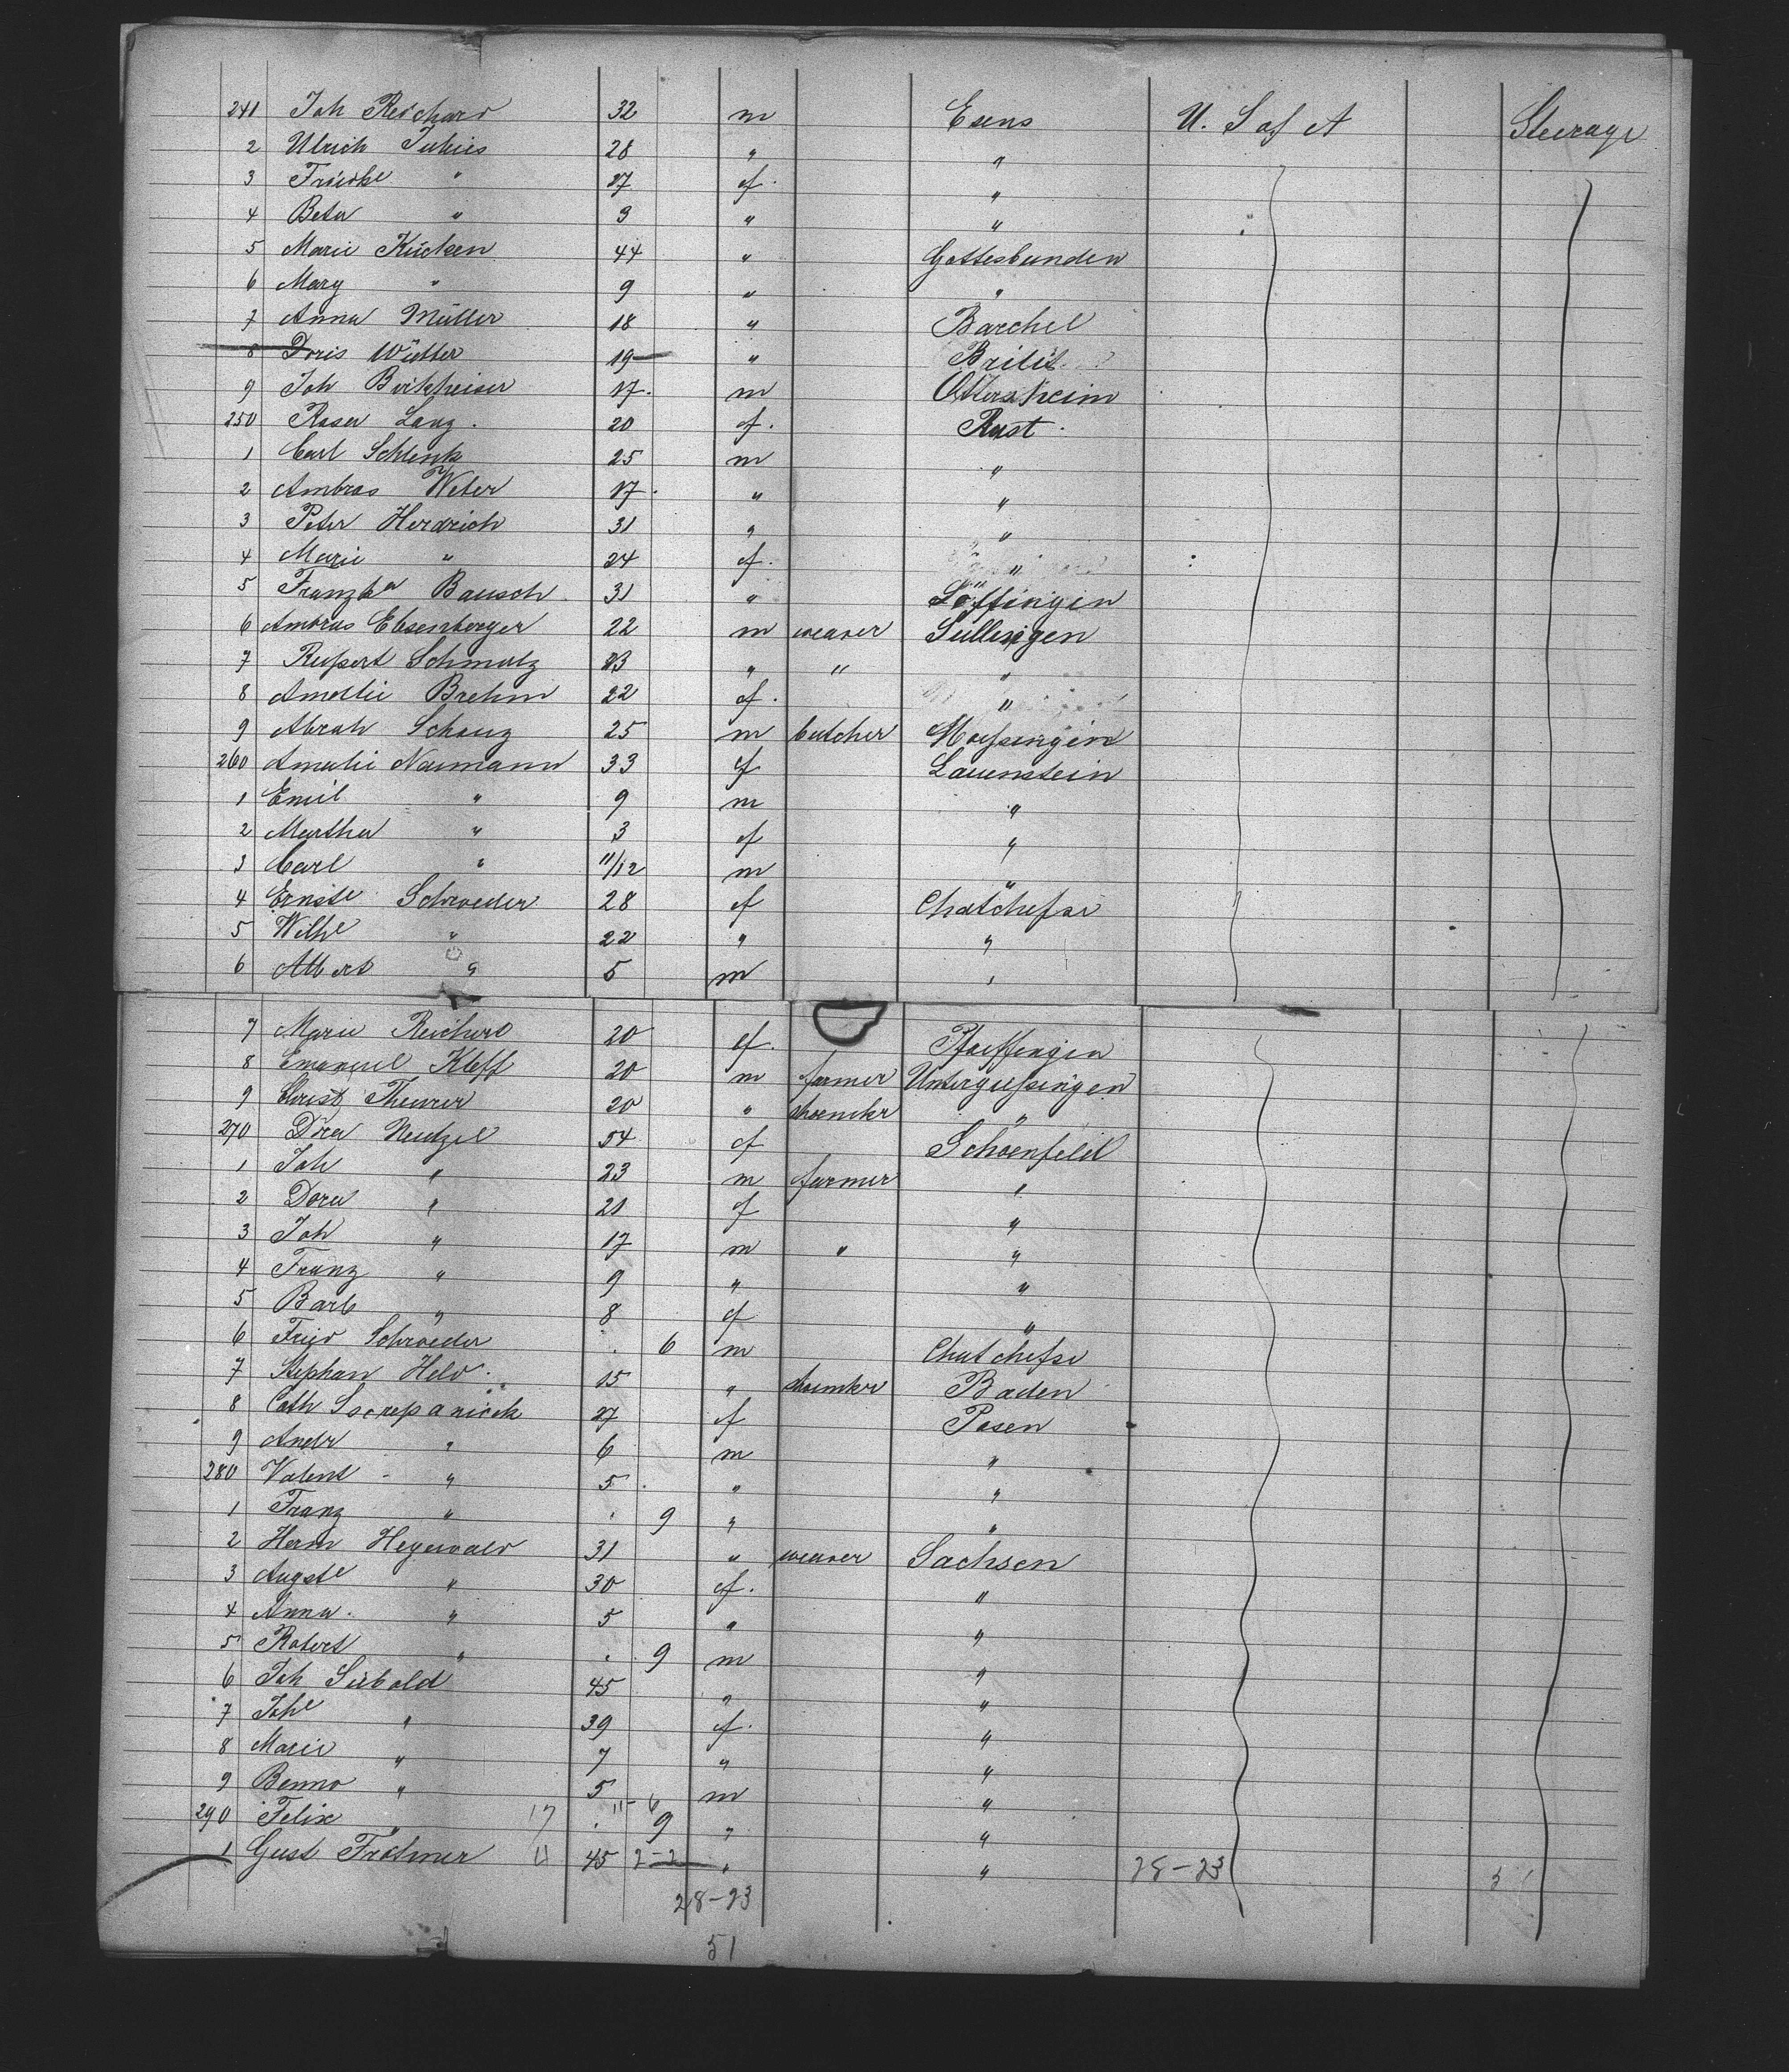 241 Joh Reichard 32 m Esens U. S of A Steerage
2 Ulrich Julius 28 " "
3 Friedke " 27 f. "
4 Beta " 3 " "
5 Marie Kücken 44 " Gottesbunden
6 Mary " 9 " "
7 Anna Müller 18 " Barchel
8 Doris Wütter 19 " Brilit
9 Joh Birkheiser 17. m Ottersheim
250 Rosa Lang. 20 f. Rust.
1 Carl Schlenk 25 m "
2 Ambros Weber 27. " "
3 Peter Herdrich 31 " "
4 Marie " 24 f. "
5 Franzka Bausch 31 " Löffingen
6 Ambros Ebsenberger 22 m weaver Sullingen
7 Rupert Schmutz 23 " " "
8 Amelie Brehm 22 f. "
9 Abrah Schanz 25 m butcher Moessingen
260 Amalie Naumann 33 f Lauenstein
1 Emil " 9 m "
2 Martha " 3 f "
3 Carl " 11/12 m "
4 Ernste Schroeder 28 f Chatchefse
5 Wilhe " 22 " "
6 Albert " 5 m "
7 Marie Reichert 20 f. Pfaeffingen
8 Emanuel Kleff 20 m farmer
9 Christ Theurer 20 " shoemkr "
270 Dora Neutzel 54 f Schoenfeld
1 Joh " 23 m farmer "
2 Dora " 21 f "
3 Joh " 17 m " "
4 Franz " 9 " "
5 Barb " 8 f "
6 Fried Schroeder . 6 m Chatchefse
7 Stephan Held. 15 " shoemkr Baden
8 Cath Sscrepanick 27 f Posen
9 Andr " 6 m "
280 Valent " 5. " "
1 Franz " . 9 " "
2 Herm Hegewald 31 " weaver Sachsen
3 Augste " 30 f. "
4 Anna. " 5 " "
5 Robert " . 9 m "
6 Joh Siebold 45 " "
7 Johe " 39 f. "
8 Marie " 7 " "
9 Benno " 5 m "
290 Felix " 17 . 11-6 9 " "
1 Gust Frohmer 11 45 2-2 " " 28-23 51
28-23
51